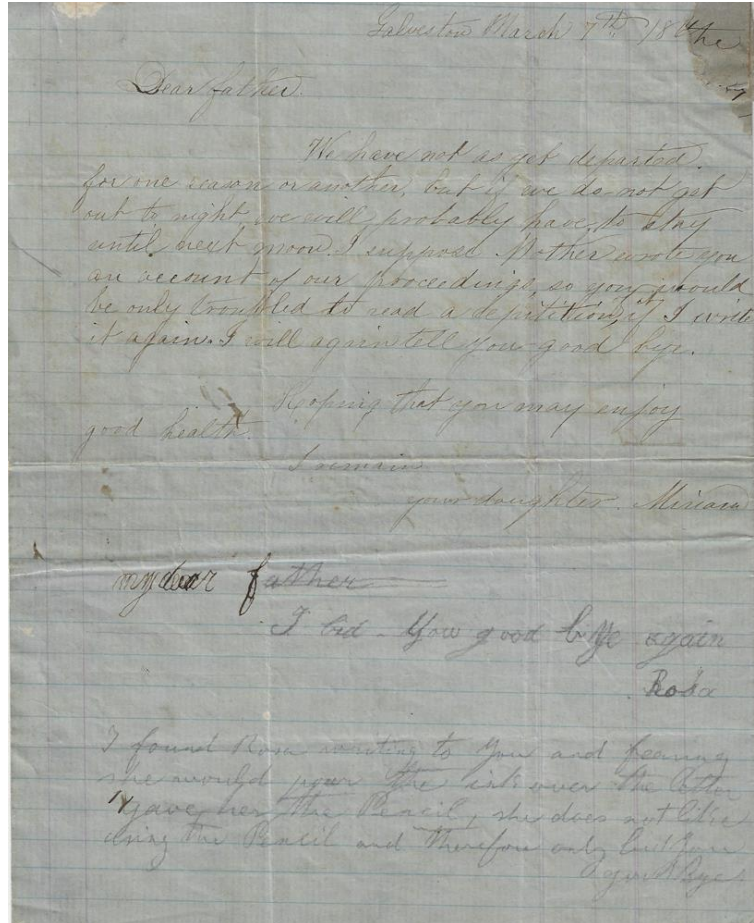 Galveston March 7th 18
the
Dear father.
We have not as yet departed.
for one reason or another, but if we do not get
out to night we will probably have to stay
until next moon. I suppose Mother wrote you
an account of our proceedings, so you would
be only troubled to read a repitition, if I write
it again. I will again tell you good bye.
Hoping that you may enjoy
good health.
I remain
your daughter. Miriam
my dear father
I bid - You good bye again
Rosa
I found Rosa writing to You and fearing
she would pour the ink over the letter
I gave her the Pencil, she does not like
using the Pencil and therefore only bid You
good Bye.